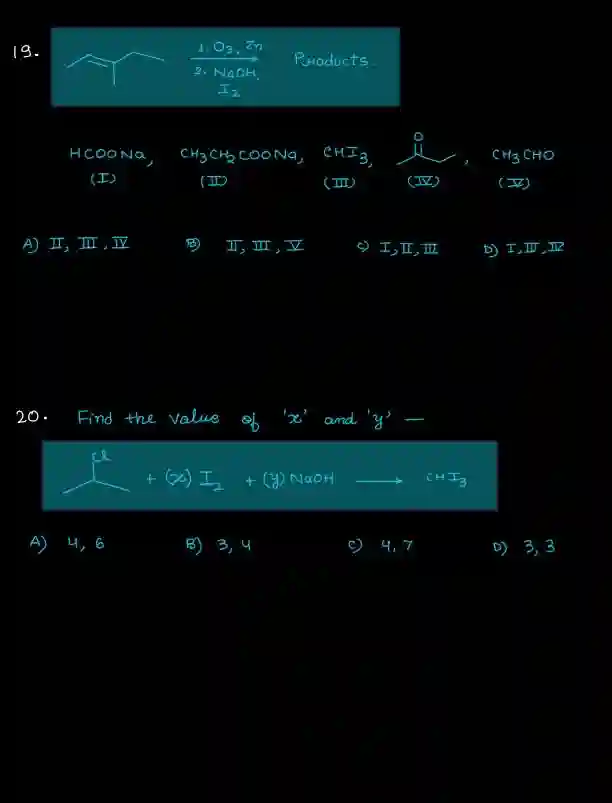 19. 1. O3, Zn Products
2. NaOH,
I2
O
HCOONa, CH3CH2COONa, CHI3, , CH3CHO
(I) (II) (III) (IV) (V)
A) II, III, IV B) II, III, V C) I, II, III D) I, III, IV
20. Find the value of 'x' and 'y' —
Cl
+ (x) I2 + (y) NaOH ⟶ CHI3
A) 4, 6 B) 3, 4 C) 4, 7 D) 3, 3